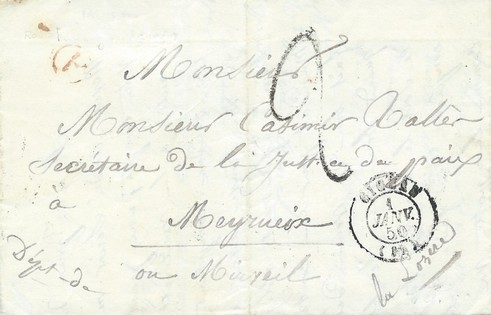 Monsieur
2
Monsieur Casimir Valter
Secrétaire de la Justice de paix
à
Meyrueix
ou Mirveil
Dépt. de
la Lozère
1
JANV.
50